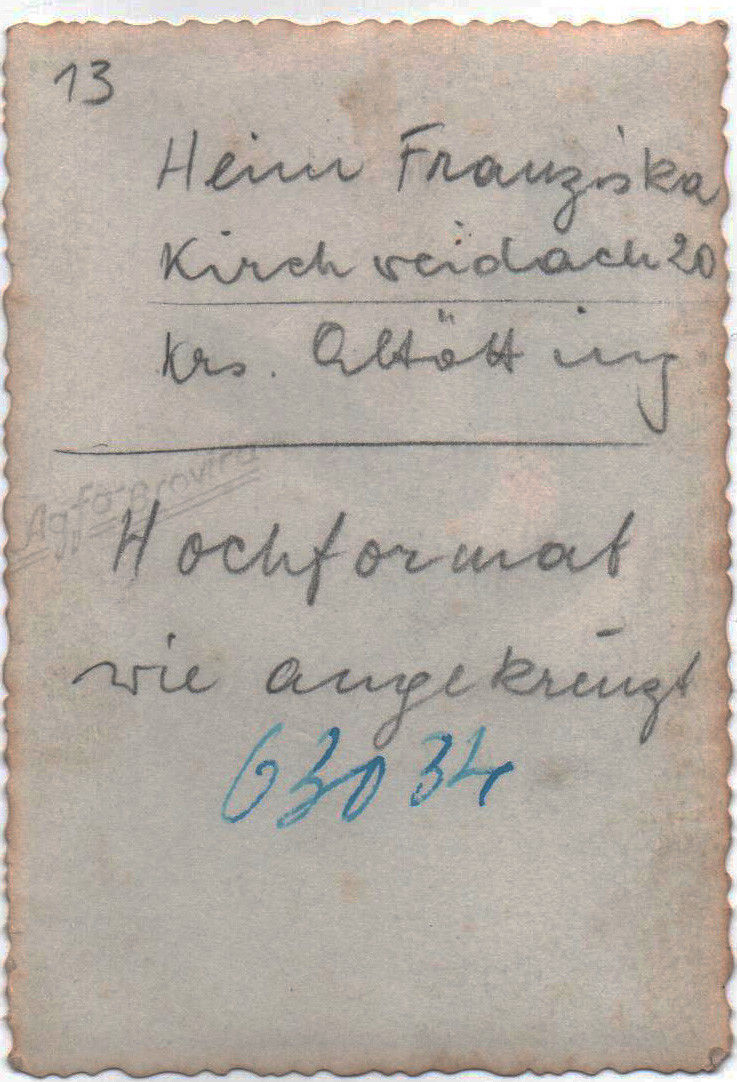 13
Heim Franziska
Kirchweidach 20
Krs. Altötting
Agfa-Brovira
Hochformat
wie angekreuzt
63034